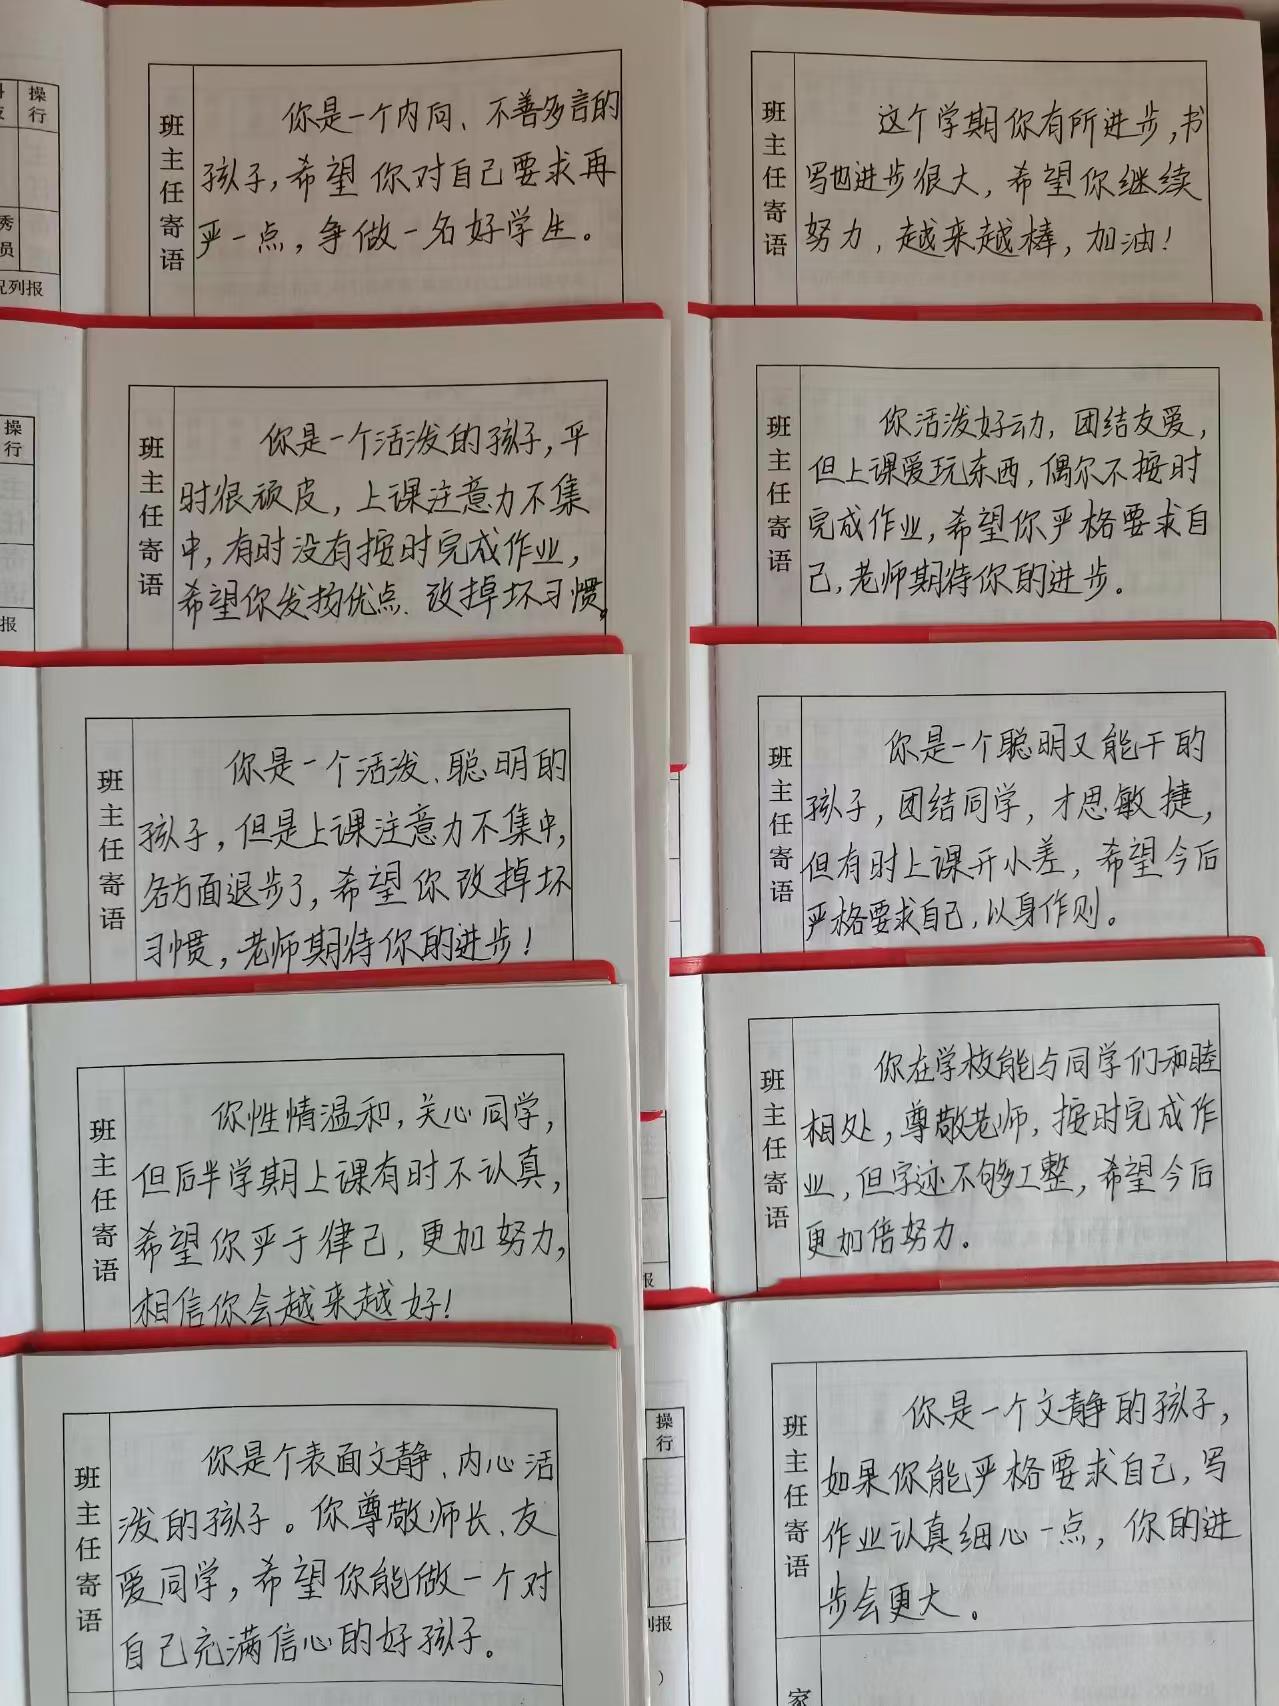 操行
秀
员
况列报
班主任寄语
你是一个内向、不善多言的
孩子,希望你对自己要求再
严一点,争做一名好学生。
操行
报
班主任寄语
你是一个活泼的孩子,平
时很顽皮,上课注意力不集
中,有时没有按时完成作业,
希望你发扬优点、改掉坏习惯。
班主任寄语
你是一个活泼、聪明的
孩子,但是上课注意力不集中,
各方面退步了,希望你改掉坏
习惯,老师期待你的进步!
班主任寄语
你性情温和,关心同学,
但后半学期上课有时不认真,
希望你严于律己,更加努力,
相信你会越来越好!
班主任寄语
你是个表面文静、内心活
泼的孩子。你尊敬师长、友
爱同学,希望你能做一个对
自己充满信心的好孩子。
班主任寄语
这个学期你有所进步,书
写也进步很大,希望你继续
努力,越来越棒,加油!
班主任寄语
你活泼好动,团结友爱,
但上课爱玩东西,偶尔不按时
完成作业,希望你严格要求自
己,老师期待你的进步。
班主任寄语
你是一个聪明又能干的
孩子,团结同学,才思敏捷,
但有时上课开小差,希望今后
严格要求自己,以身作则。
班主任寄语
你在学校能与同学们和睦
相处,尊敬老师,按时完成作
业,但字迹不够工整,希望今后
更加倍努力。
报
操行
列报
)
班主任寄语
你是一个文静的孩子,
如果你能严格要求自己,写
作业认真细心一点,你的进
步会更大。
家